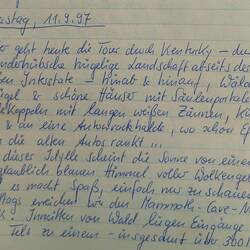 stag, 11.9.97
geht heute die Tour durch Kentucky – du
wunderhübsche hügelige Landschaft abseits des
Linksstate – hinab & hinauf, Wälde
& schöne Häuser mit Säulenportal
koppeln mit langen weißen Zäunen, Kü
& an eine Autowrackhalde, wo schon E
die alten Autos rankt ...
dieser Idylle scheint die Sonne von einem
unglaublich blauen Himmel voller Wolkengeb
es macht Spaß, einfach nur zu schauen
ttags erreichen wir den Mammoth-Cave-N
Inmitten von Wald liegen Eingänge
Teils zu einem – insgesamt über 300